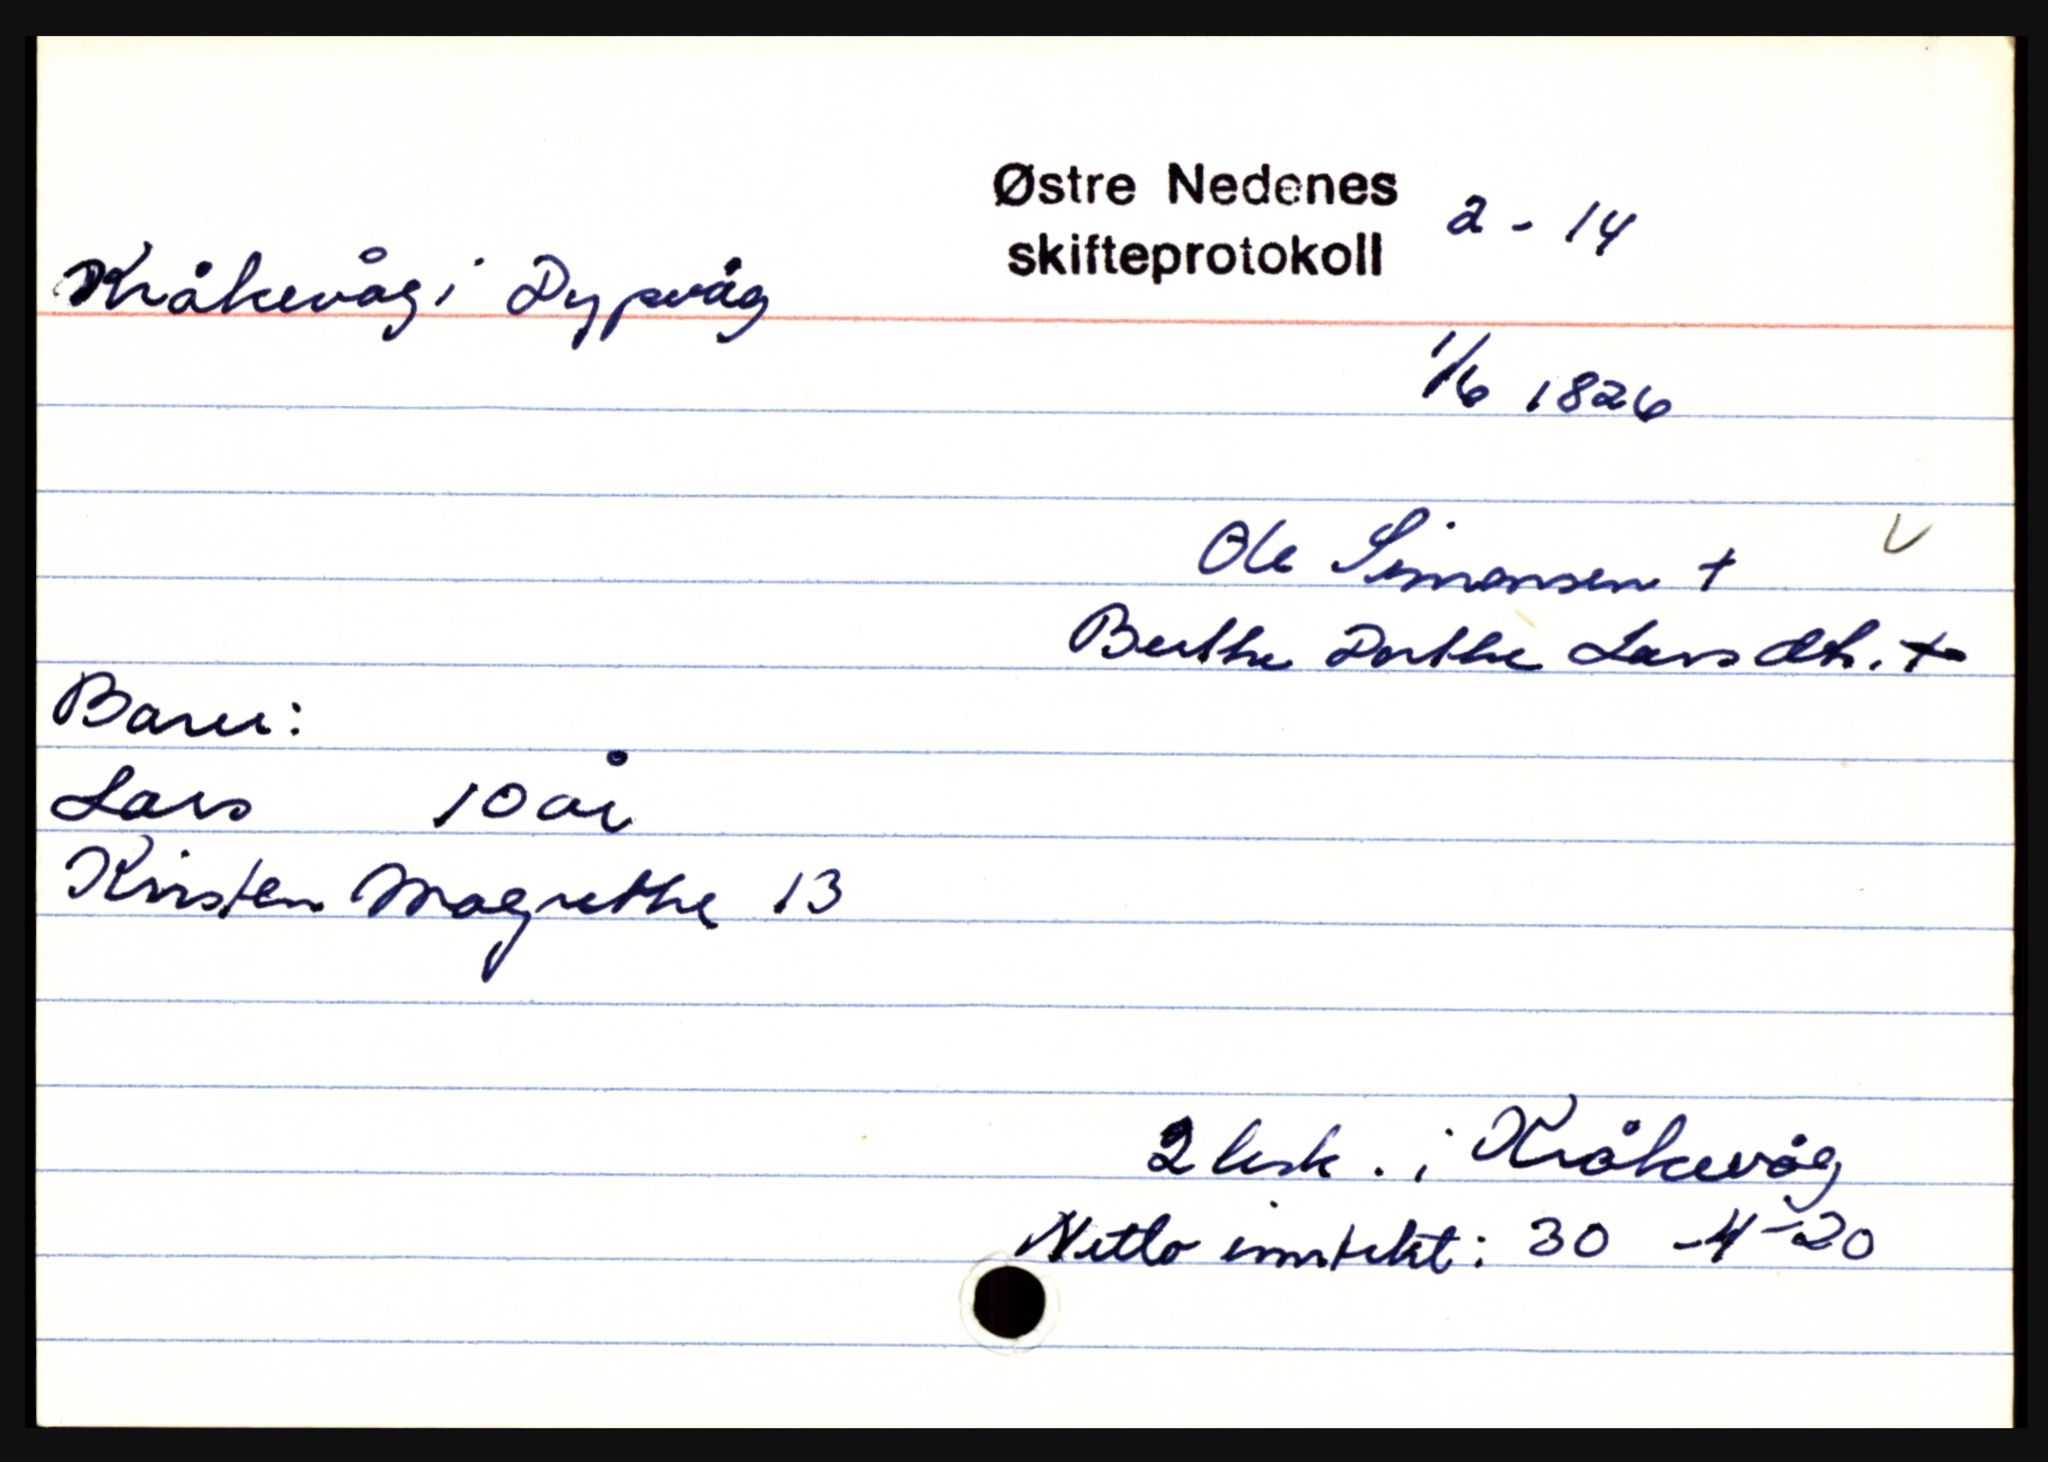 Østre Nedenes
skifteprotokoll 2 - 14
Kråkevåg i Dypvåg
1/6 1826
Ole Simonsen +
Berthe Dorthe Larsdtr. +
Barn:
Lars 10 år
Kirsten Magrethe 13
2 lisk. i Kråkevåg
Netto inntekt: 30 - 4 - 20